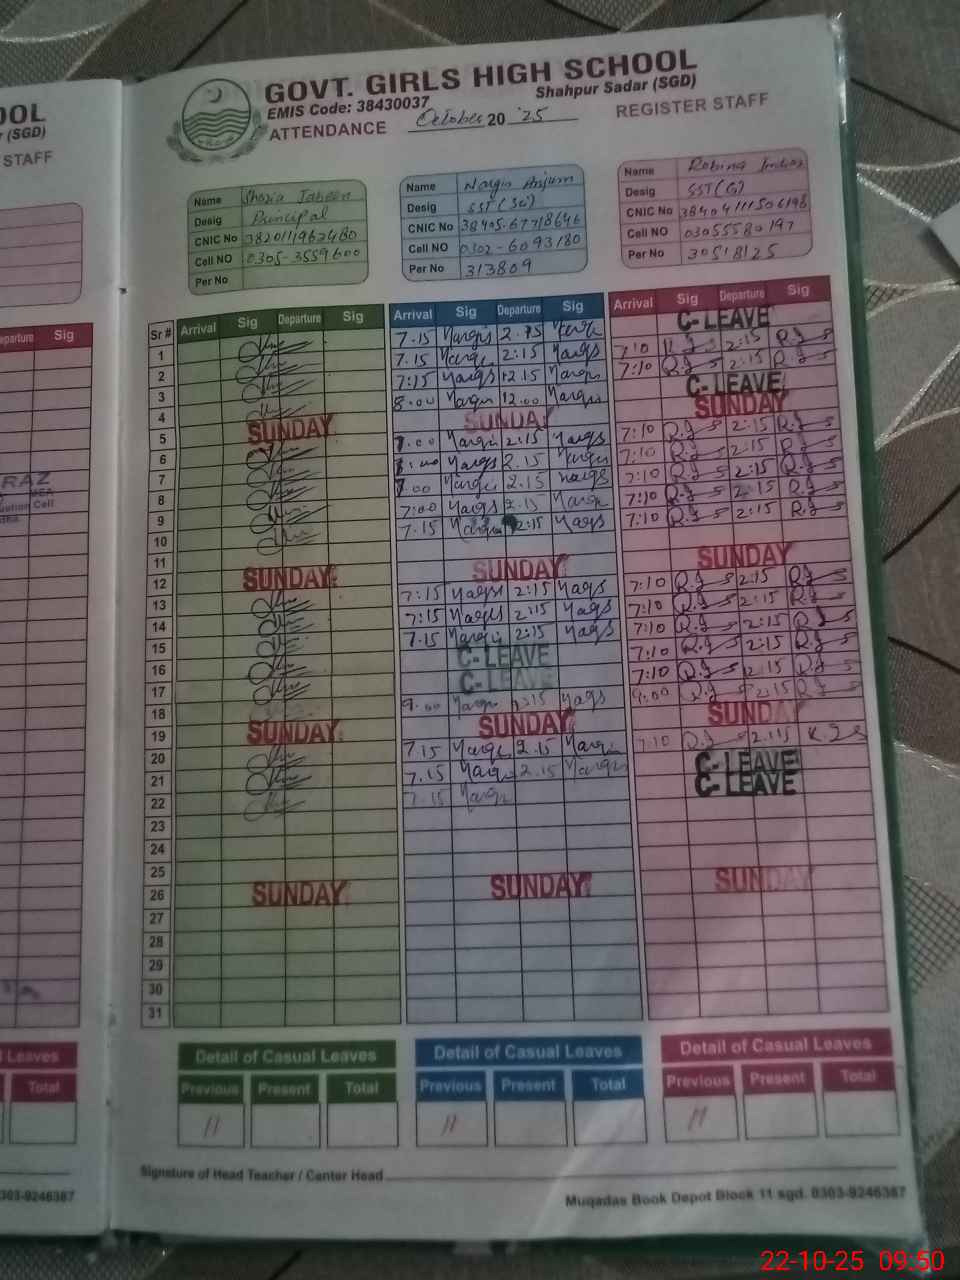 OOL
(SGD)
STAFF
Departure Sig
Leaves
Total
0303-9246387
GOVT. GIRLS HIGH SCHOOL
EMIS Code: 38430037 Shahpur Sadar (SGD)
ATTENDANCE October 20 '25 REGISTER STAFF
Name Shazia Tabeen
Desig Principal
CNIC No
Cell NO 0305-3559600
Per No
Name Nargis Anjum
Desig SST(Sc)
CNIC No 38405-67718646
Cell NO 0302-6093180
Per No 313809
Name Robina Imtiaz
Desig SST(G)
CNIC No
Cell NO 03055580197
Per No 30518125
Sr # Arrival Sig Departure Sig Arrival Sig Departure Sig Arrival Sig Departure Sig
1 7.15 Nargis 2.15 Nargis C-LEAVE
2 7.15 Nargis 2:15 Nargis 7:10 R.I 2:15 R.I
3 7:15 Nargis 12.15 Nargis 7:10 R.I 2:15 R.I
4 8.00 Nargis 12.00 Nargis C-LEAVE
5 SUNDAY SUNDAY SUNDAY
6 7.00 Nargis 2:15 Nargis 7:10 R.I 2:15 R.I
7 Nargis 2.15 Nargis 7:10 R.I 2:15 R.I
8 7.00 Nargis 2.15 Nargis 7:10 R.I 2:15 R.I
9 7:00 Nargis 2.15 Nargis 7:10 R.I 2:15 R.I
10 7.15 Nargis 2:15 Nargis 7:10 R.I 2:15 R.I
11
12 SUNDAY SUNDAY SUNDAY
13 7:15 Nargis 2:15 Nargis 7:10 R.I 2:15 R.I
14 7:15 Nargis 2:15 Nargis 7:10 R.I 2:15 R.I
15 7.15 Nargis 2:15 Nargis 7:10 R.I 2:15 R.I
16 C-LEAVE 7:10 R.I 2:15 R.I
17 C-LEAVE 7:10 R.I 2:15 R.I
18 9.00 Nargis 2:15 Nargis 9:00 R.I 2:15 R.I
19 SUNDAY SUNDAY SUNDAY
20 7.15 Nargis 2.15 Nargis 7:10 R.I 2:15 R.I
21 7.15 Nargis 2.15 Nargis C-LEAVE
22 7.15 Nargis C-LEAVE
23
24
25
26 SUNDAY SUNDAY SUNDAY
27
28
29
30
31
Detail of Casual Leaves Detail of Casual Leaves Detail of Casual Leaves
Previous Present Total Previous Present Total Previous Present Total
11 11 11
Signature of Head Teacher / Center Head
Muqadas Book Depot Block 11 sgd. 0303-9246387
22-10-25 09:50